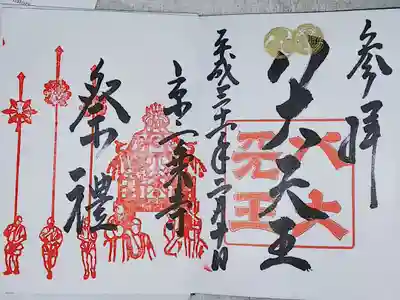 参拝
八大天王
八大
天王
平成三十一年二月十日
京一乗寺
祭禮